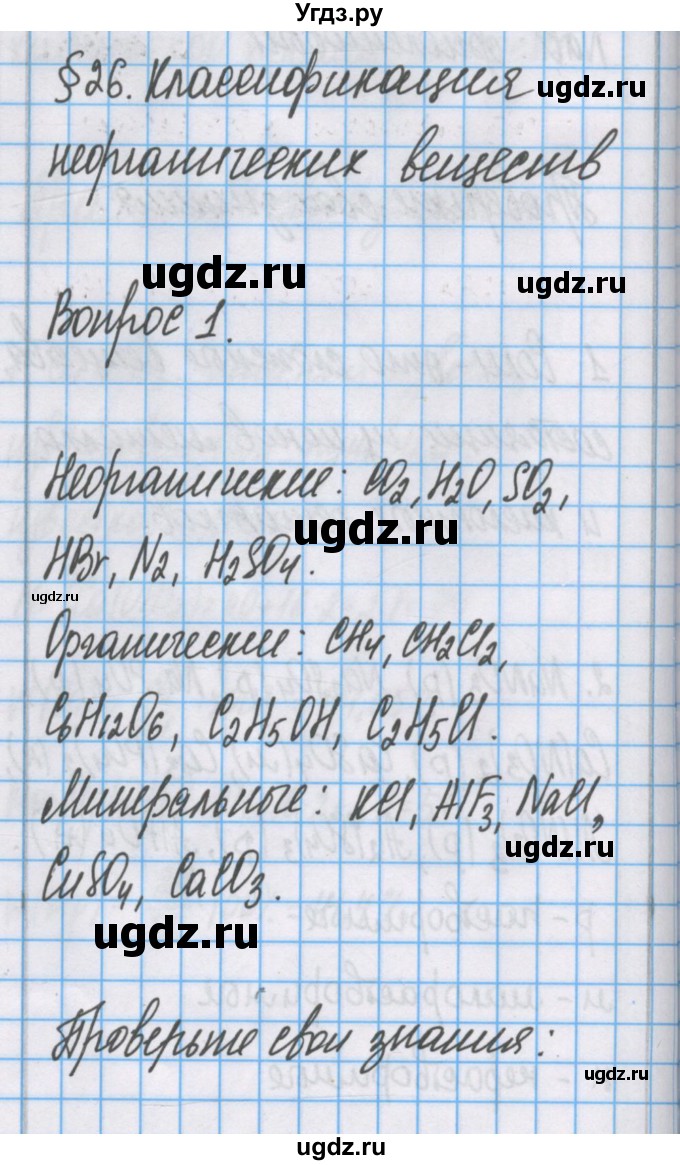 Угдз.ру
§26. Классификация
ugdz.ru
неорганических веществ
ugdz.ru
ugdz.ru
Вопрос 1.
Неорганические: CO2, H2O, SO2,
ugdz.ru
HBr, N2, H2SO4.
ugdz.ru
Органические: CH4, CH2Cl2,
C6H12O6, C2H5OH, C2H5Cl.
Минеральные: KCl, AlF3, NaCl,
ugdz.ru
CuSO4, CaCO3.
ugdz.ru
Проверьте свои знания:
ugdz.ru
ugdz.ru